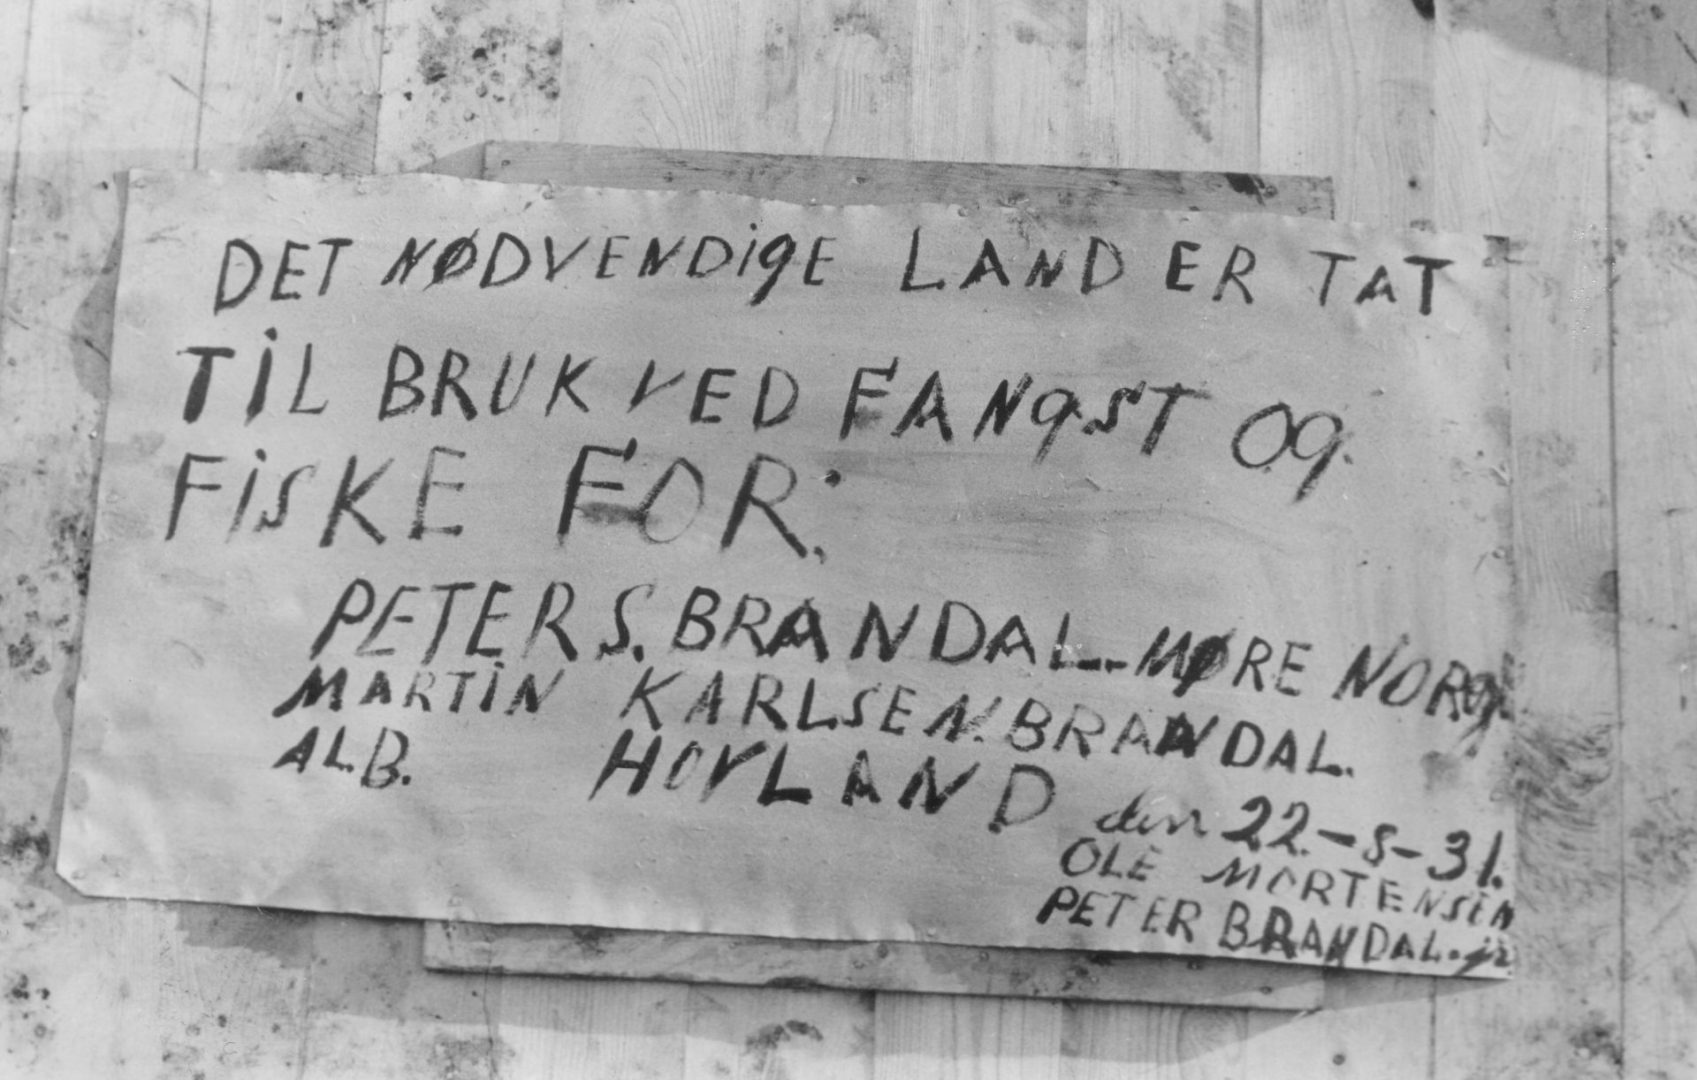 DET NØDVENDiGE LAND ER TAT
TiL BRUK VED FANGST OG.
FiSKE FOR:
PETER S. BRANDAL.-MØRE NORG.
MARTiN KARLSEN. BRANDAL.
ALB. HOVLAND den 22.-8-31.
OLE MORTENSEN
PETER BRANDAL. jr